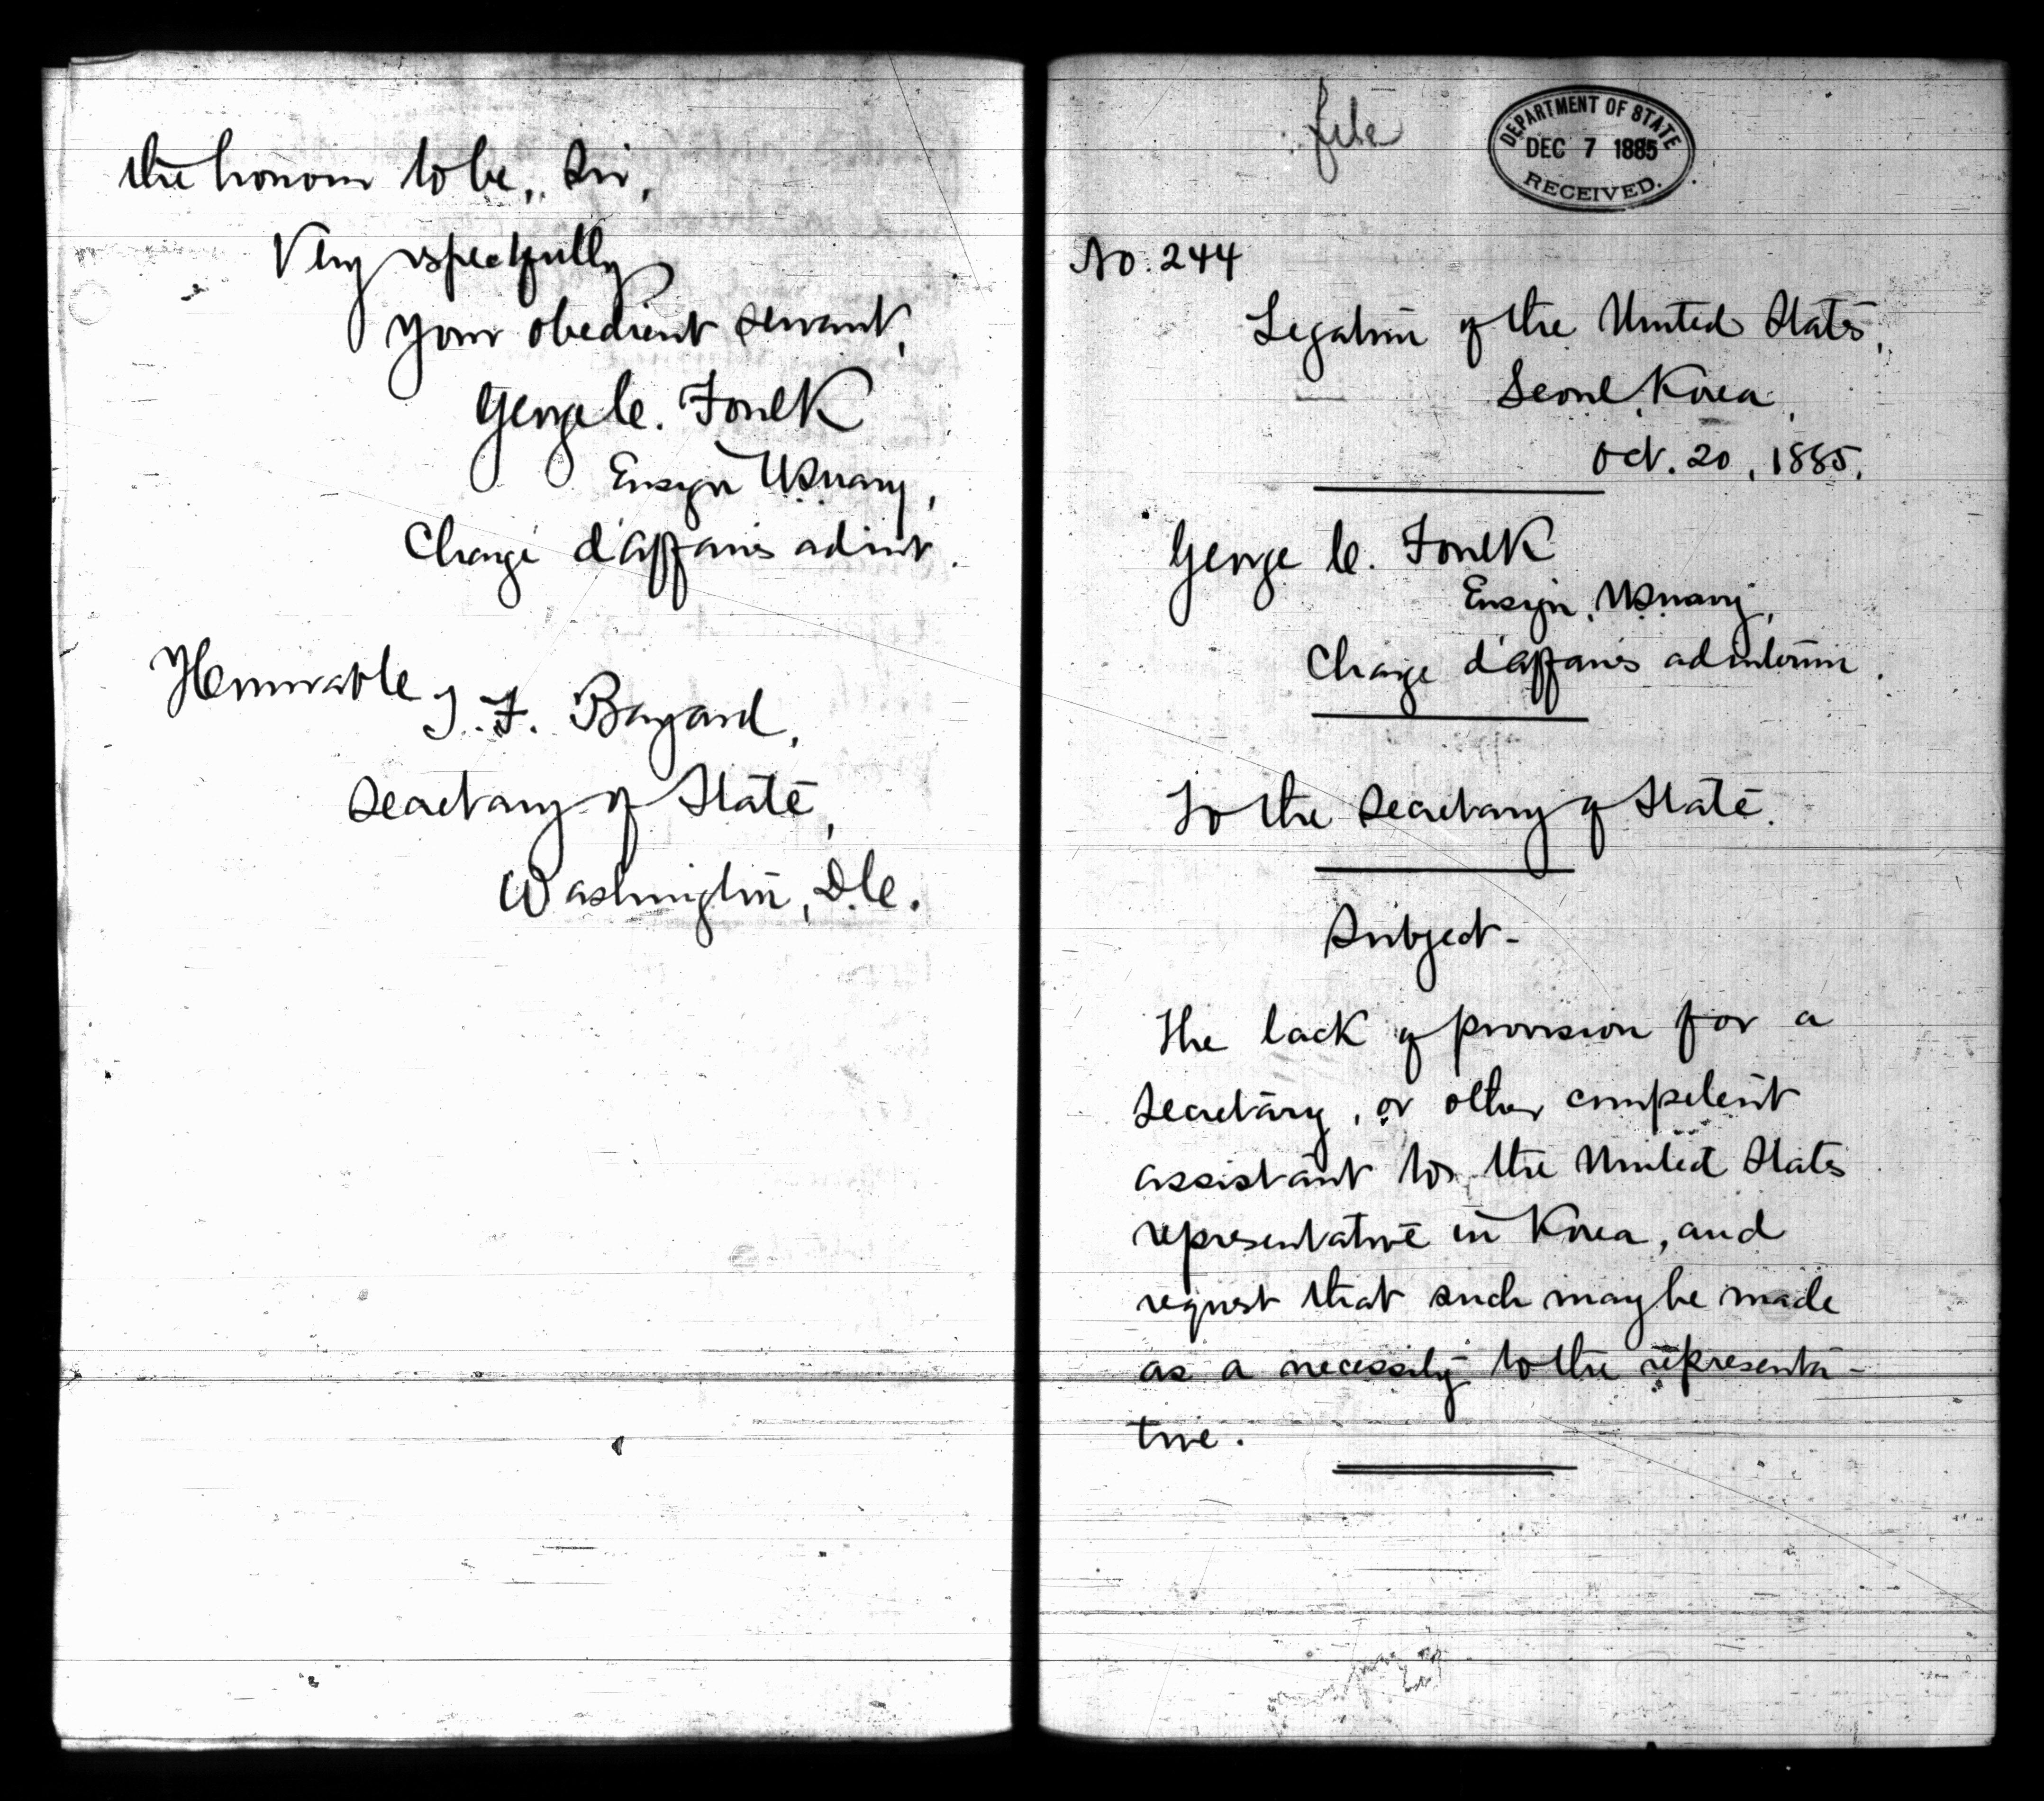 the honor to be, Sir,
Very respectfully
Your obedient servant,
George C. Foulk
Ensign U.S. Navy,
Chargé d'affaires ad int.
Honorable
T. F. Bayard,
Secretary of State,
Washington, D.C.
file
DEPARTMENT OF STATE
DEC 7 1885
RECEIVED.
No. 244
Legation of the United States,
Seoul, Korea,
Oct. 20, 1885.
George C. Foulk
Ensign, U.S. Navy,
Chargé d'affaires ad interim.
To the Secretary of State.
Subject-
The lack of provision for a
Secretary, or other competent
assistant to the United States
representative in Korea, and
request that such may be made
as a necessity to the representa-
tive.